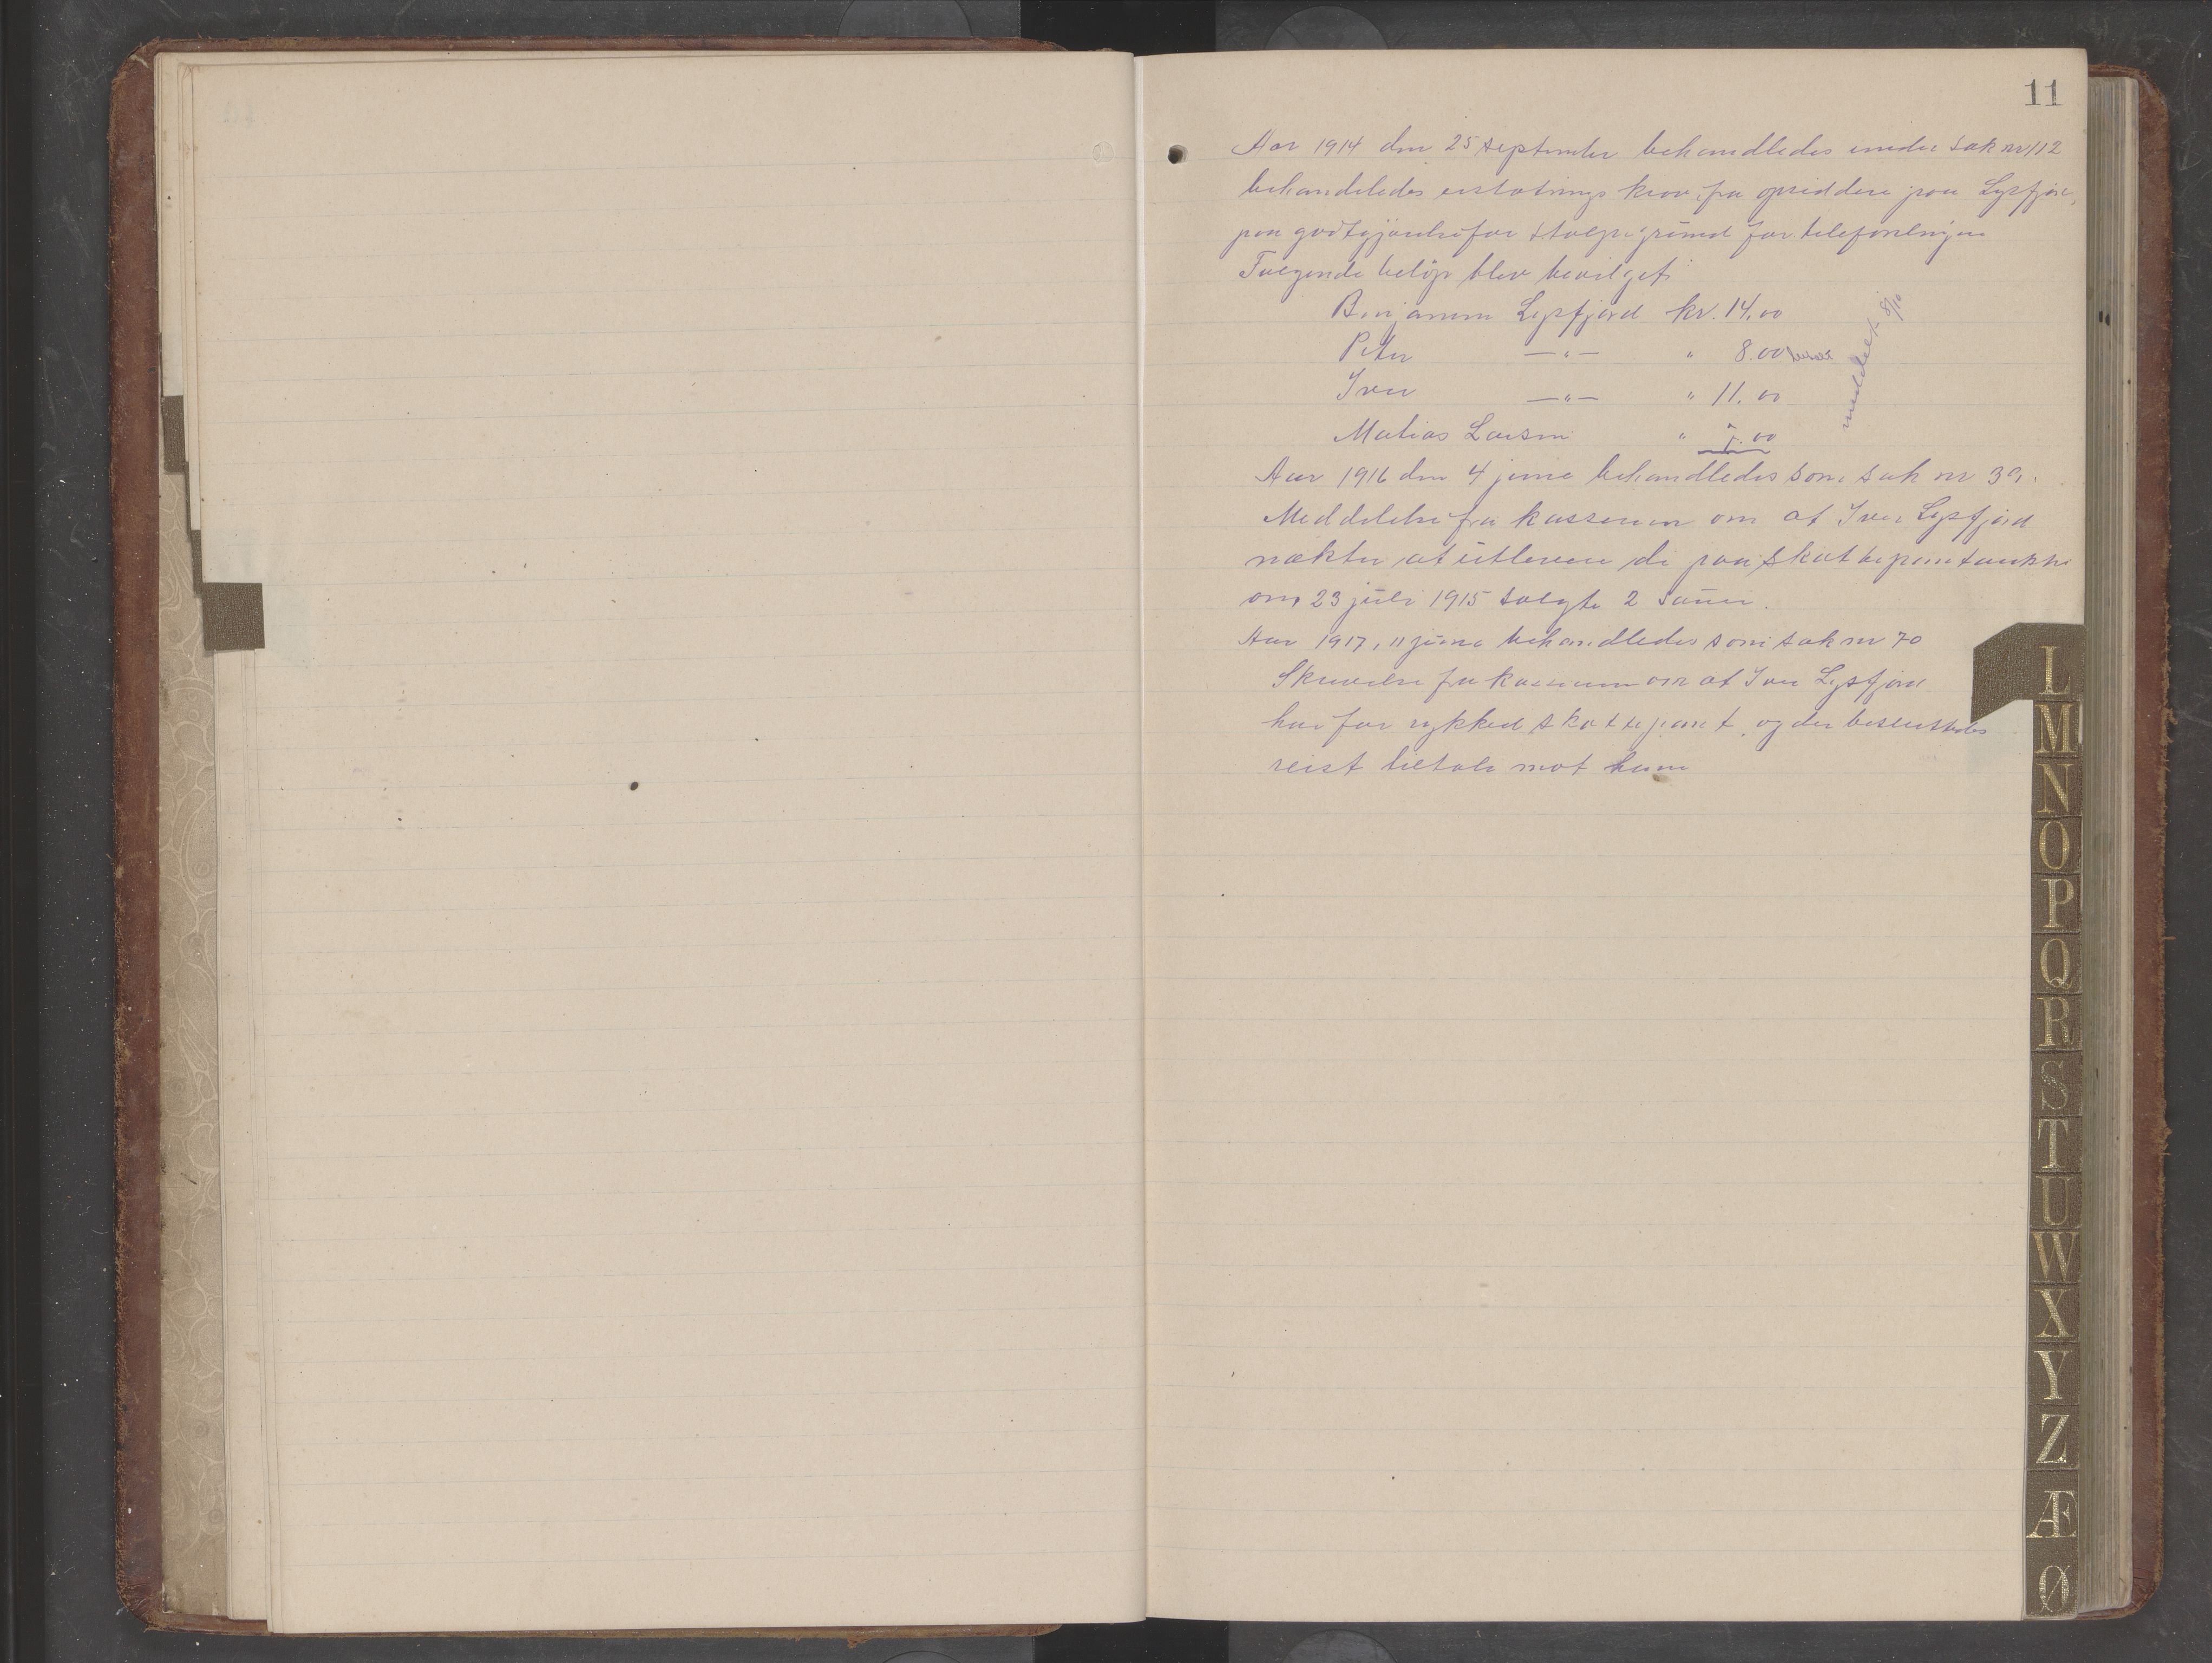 11
Aar 1914 den 25 september behandledes under sak nr 112
behandeledes erstatnings krav fra opsiddere paa Lysfjor,
paa godtgjörelse for stolpegrund for telefonlinjen
Følgende beløp blev bevilget
Benjamin Lysfjord kr. 14.00
Peter —"— " 8.00
Iver —"— " 11.00
meddelt 8/10
Matias Larsen " .00
Aar 1916 den 4 juni behandledes som sak nr 39.
Meddelelse fra kassereren om at Iver Lysfjord
nækter at utlevere de paa skattepantauktion
23 juli 1915 solgte 2 sauer.
Aar 1917, 11 juni behandledes som sak nr 70
Skrivelse fra kassereren om at Iver Lysfjord
har for rykked skattepant og der besluttedes
reist tiltale mot ham
L
M
N
O
P
Q
R
S
T
U
W
X
Y
Z
Æ
Ø